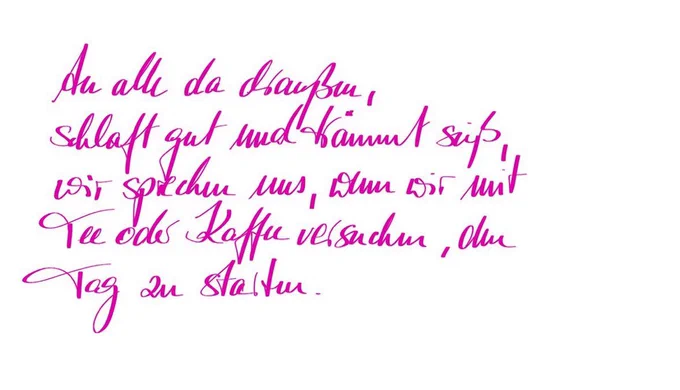 An alle da draußen,
schlaft gut und träumt süß,
wir sprechen uns, wenn wir mit
Tee oder Kaffee versuchen, den
Tag zu starten.